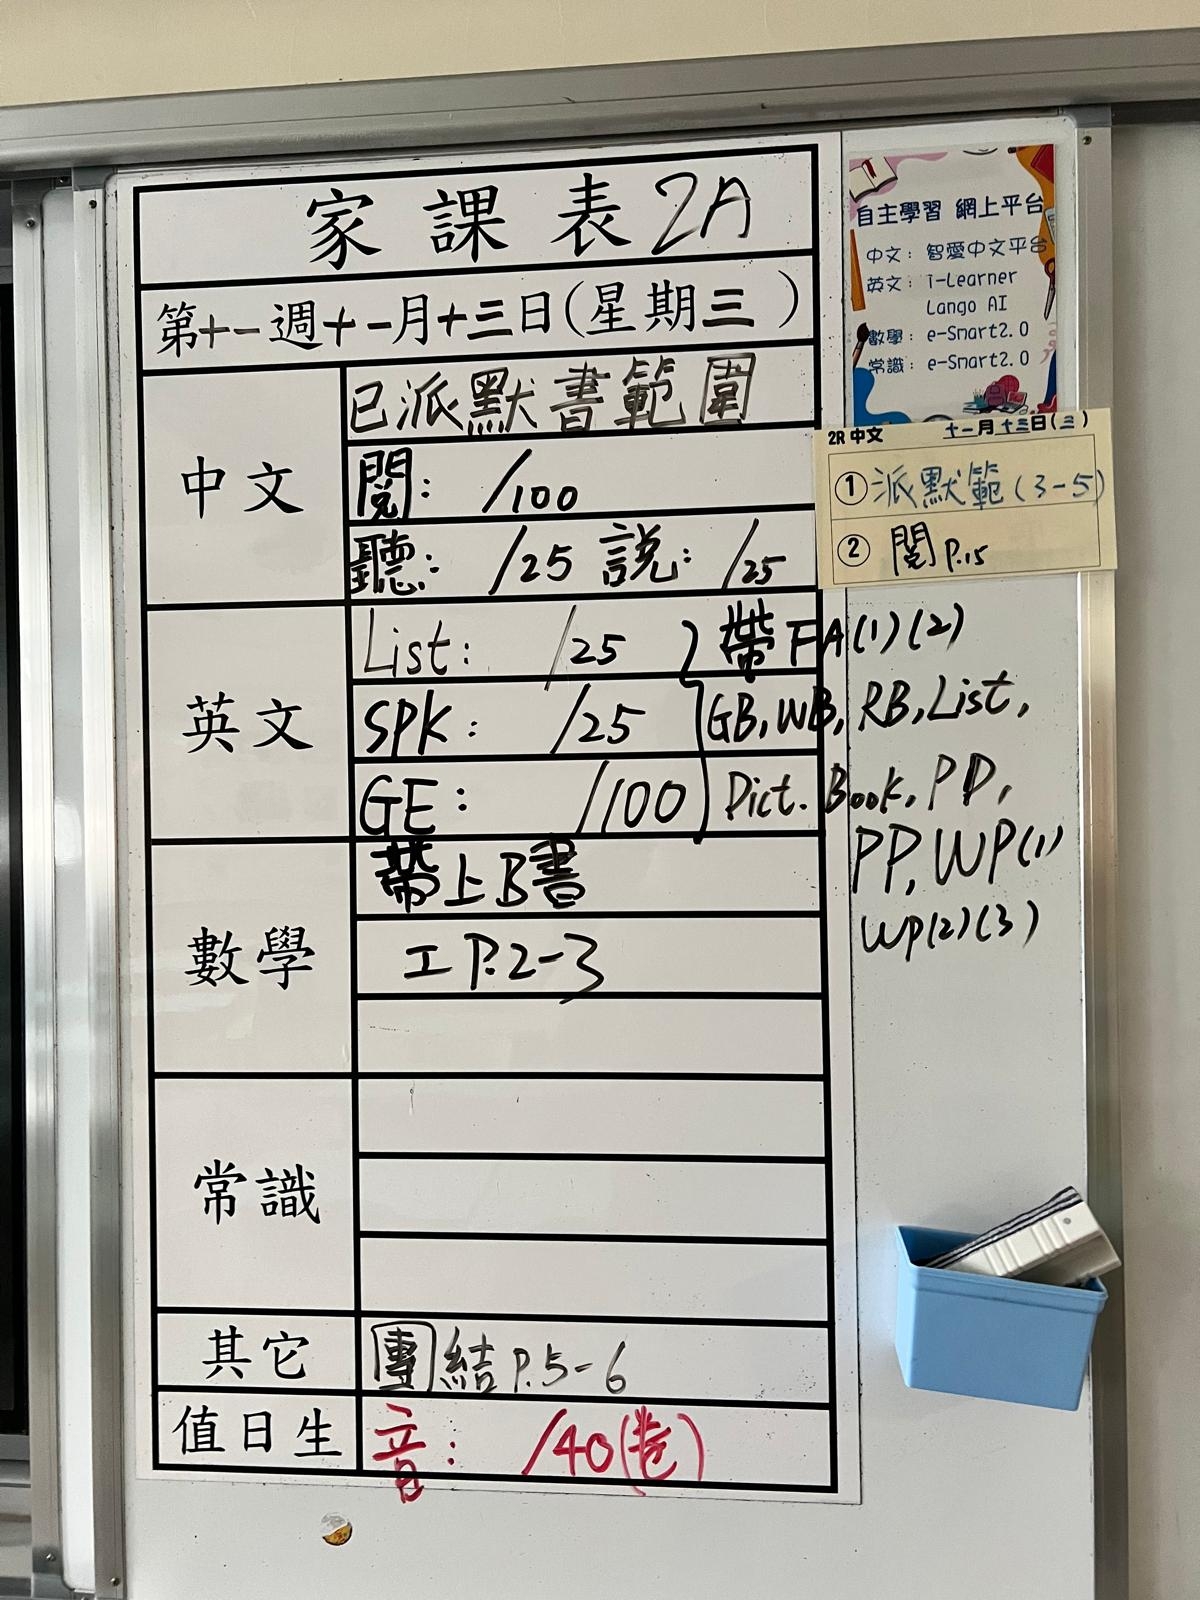 家課表 2A
第十一週十一月十三日(星期三)
中文
已派默書範圍
閱: /100
聽: /25 説: /25
英文
List: /25
SPK: /25
GE: /100
帶FA(1)(2)
GB, WB, RB, List,
Dict. Book, PD,
PP, WP(1)
WP(2)(3)
數學
帶上B書
工 P.2-3
常識
其它
團結 P.5-6
值日生
音: /40(卷)
自主學習 網上平台
中文: 智愛中文平台
英文: i-Learner
Lango AI
數學: e-Smart2.0
常識: e-Smart2.0
2R 中文 十一月十三日(三)
① 派默範(3-5)
② 閱 P.15